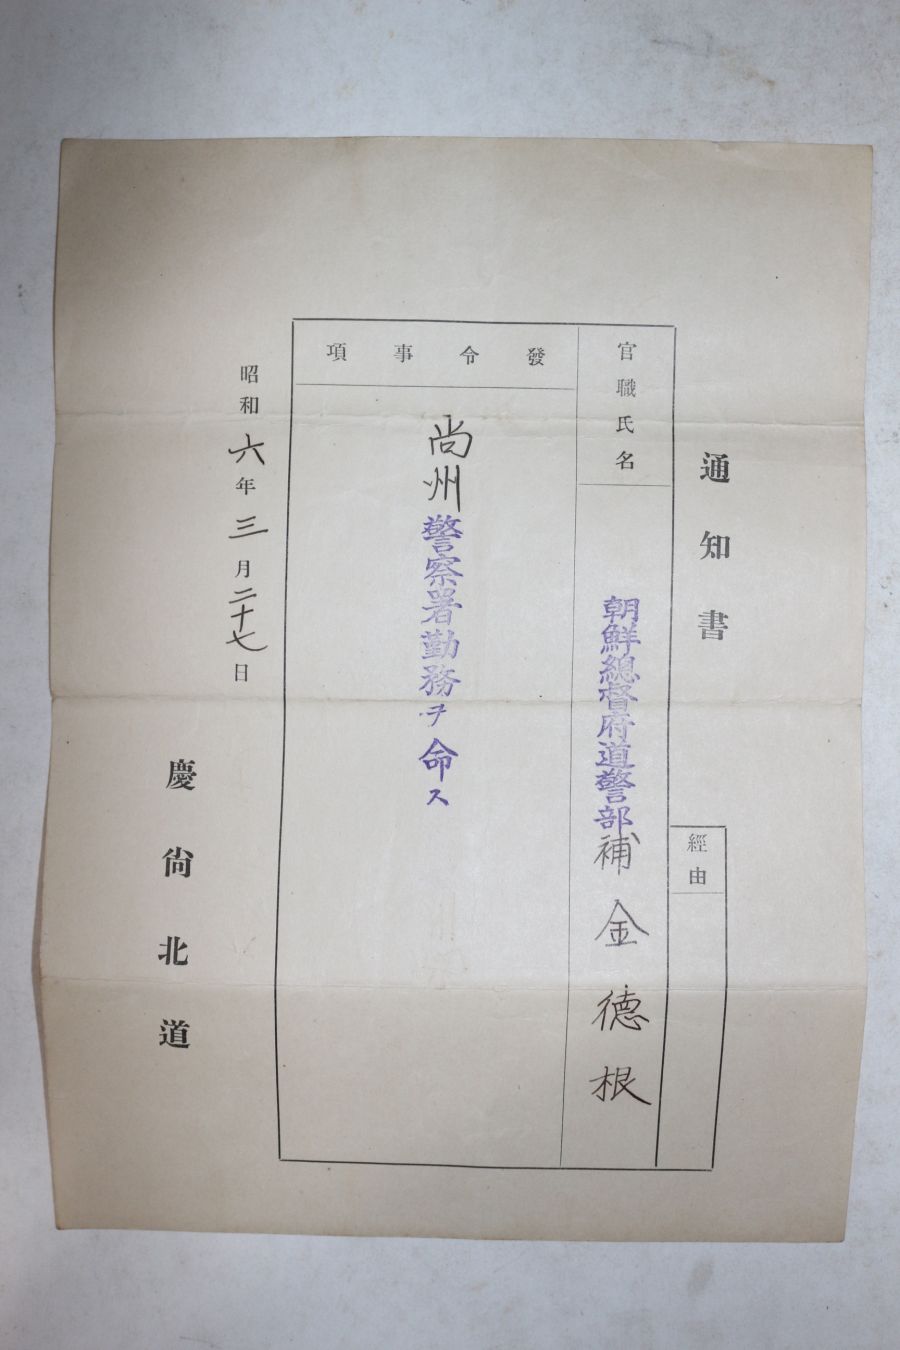 通知書
經由
官職氏名
朝鮮總督府道警部補 金德根
發令事項
尚州警察署勤務ヲ命ス
昭和六年三月二十七日
慶尙北道